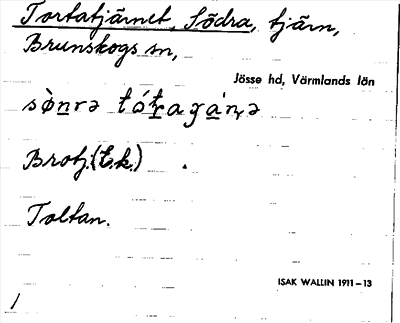 Tortatjärnet, Södra, tjärn,
Brunskogs sn,
Jösse hd, Värmlands län
Brotj. (t.k.)
Toltan.
ISAK WALLIN 1911–13
1